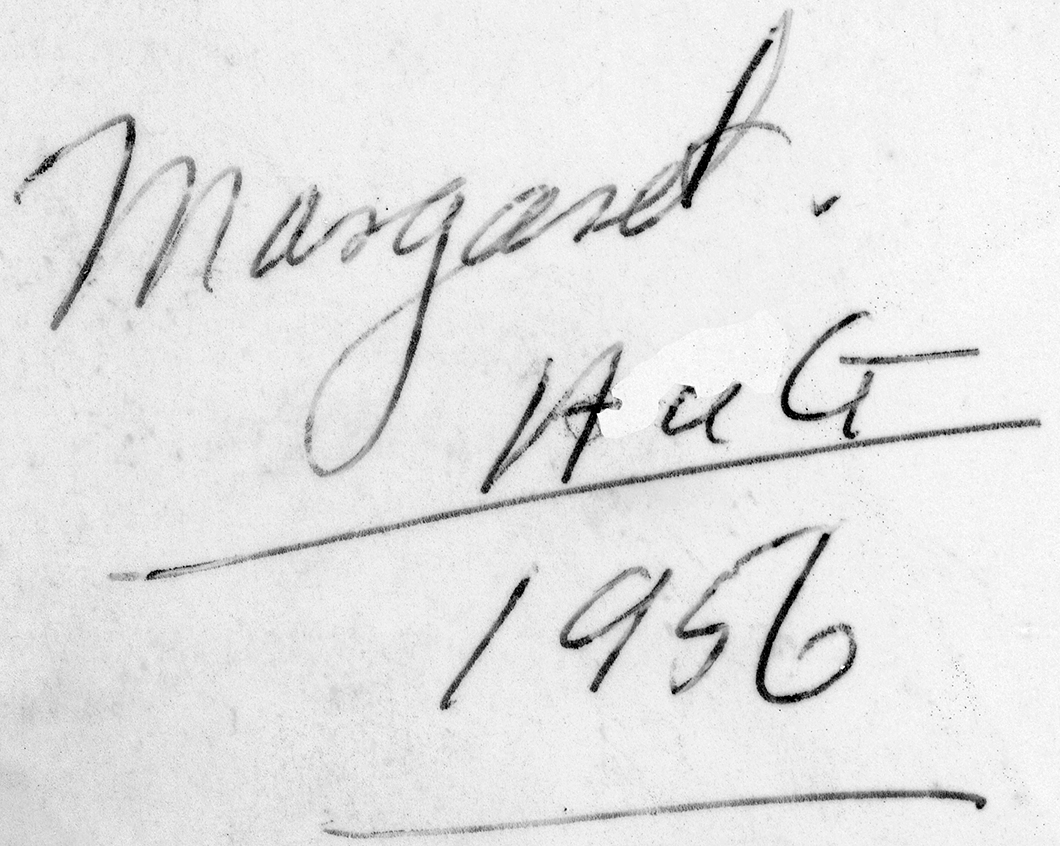 Margaret.
HuG
1956